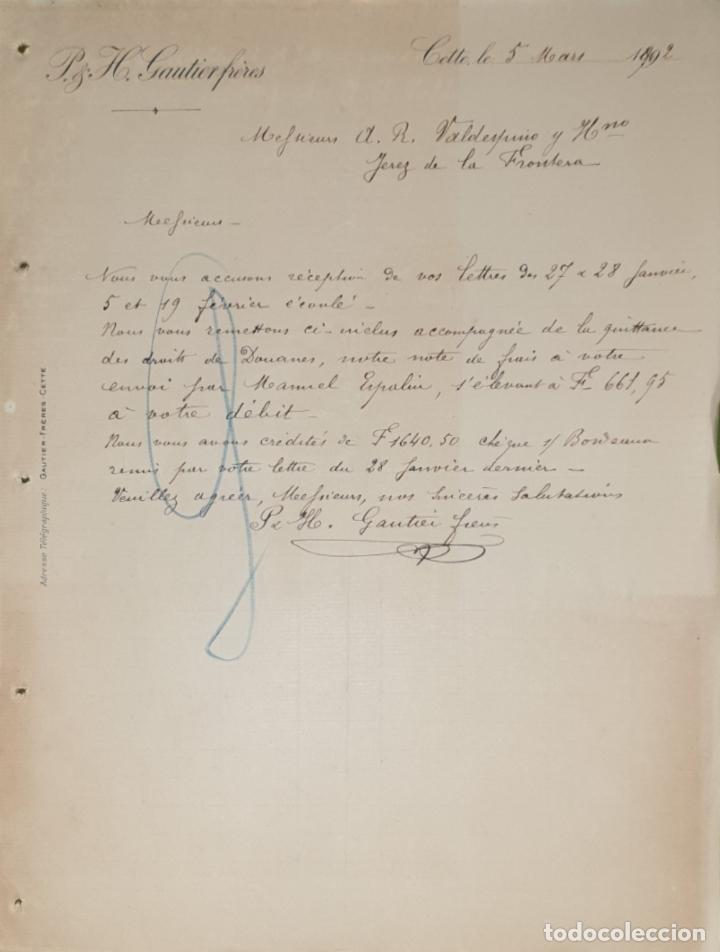 P. & H. Gautier frères
Cette, le 5 Mars 1892
Messieurs A. R. Valdespino y Hno
Jerez de la Frontera
Messieurs –
Nous vous accusons réception de vos lettres des 27 & 28 Janvier,
5 et 19 février écoulé –
Nous vous remettons ci-inclus accompagnée de la quittance
des droits de Douanes, notre note de frais à votre
envoi par Manuel Espaliu, s'élevant à F 661,95
à votre débit –
Nous vous avons crédités de F 1640.50 chèque s/ Bordeaux
remis par votre lettre du 28 Janvier dernier –
Veuillez agréer, Messieurs, nos sincères salutations
P & H. Gautier frères
Adresse Télégraphique: GAUTIER-FRÈRES-CETTE
todocoleccion